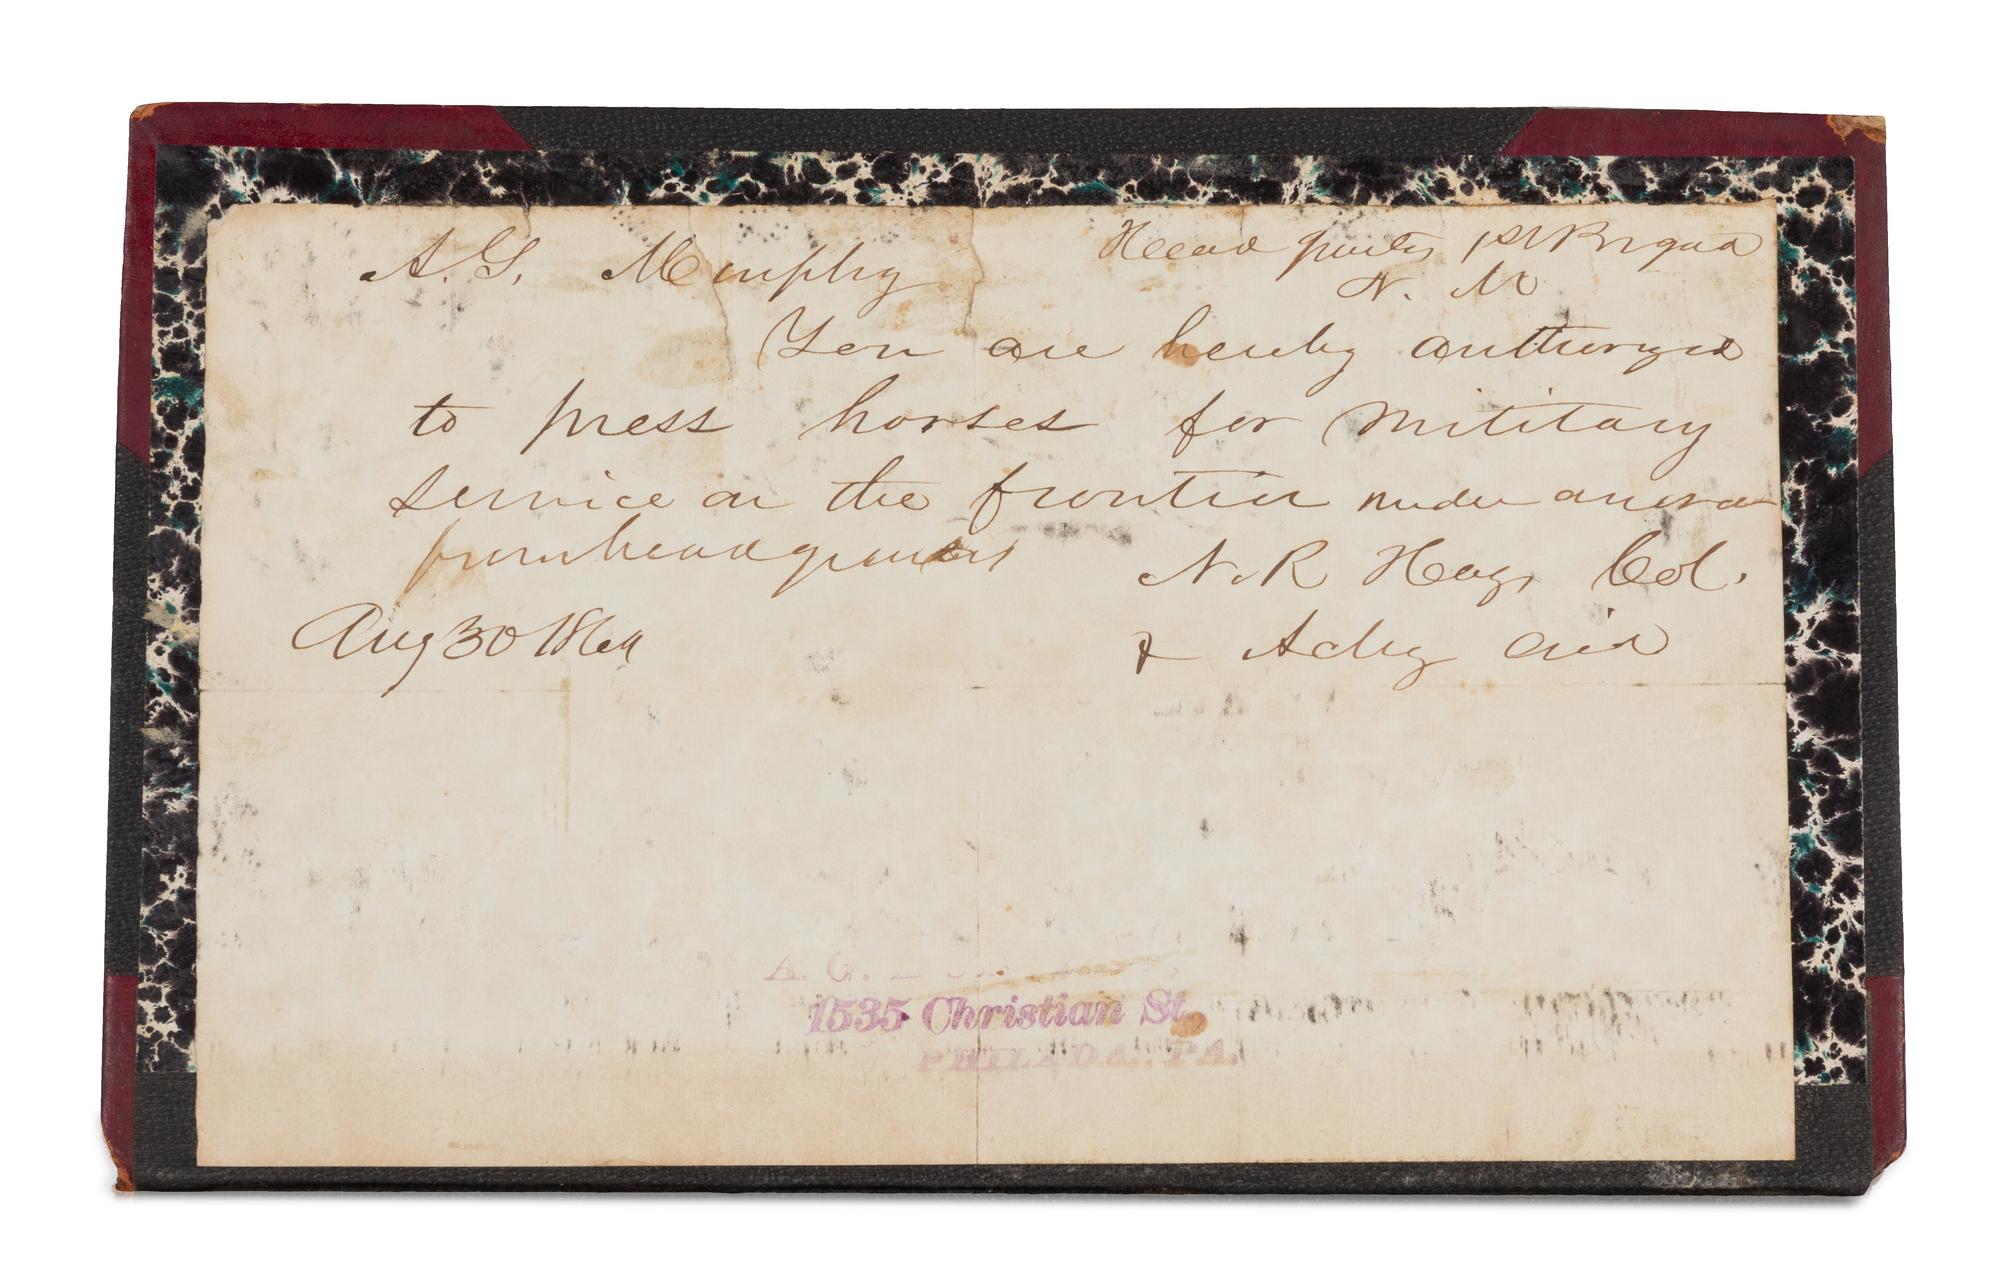 A. G. Murphy
Head quarters 1st Brigad
N. M
You are hereby authoryed
to press horses for Mititary
service on the frontier under an order
from headquarters
N. R Hays Col.
Aug 30 1864
& Actg aid
A. G.
1535 Christian St.
PHILADA., PA.